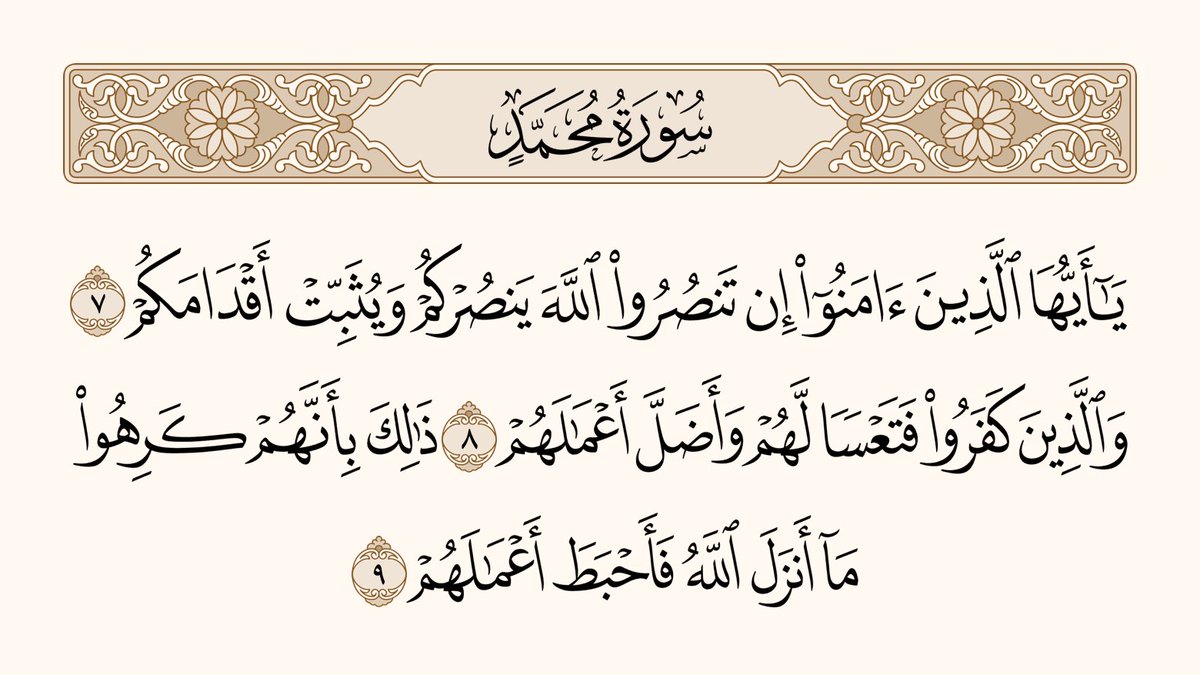 سُورَةُ مُحَمَّدٍ
يَـٰٓأَيُّهَا ٱلَّذِينَ ءَامَنُوٓا۟ إِن تَنصُرُوا۟ ٱللَّهَ يَنصُرْكُمْ وَيُثَبِّتْ أَقْدَامَكُمْ ٧
وَٱلَّذِينَ كَفَرُوا۟ فَتَعْسًا لَّهُمْ وَأَضَلَّ أَعْمَـٰلَهُمْ ٨ ذَٰلِكَ بِأَنَّهُمْ كَرِهُوا۟
مَآ أَنزَلَ ٱللَّهُ فَأَحْبَطَ أَعْمَـٰلَهُمْ ٩